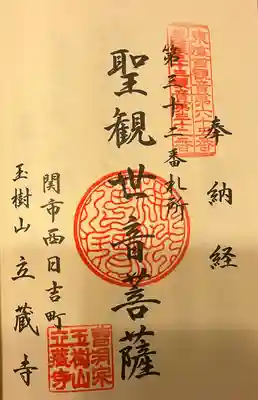 奉納経
東海百観音第六十五番
第三十二番札所
聖観世音菩薩
関市西日吉町
玉樹山 立蔵寺
曹洞宗
玉樹山
立蔵寺